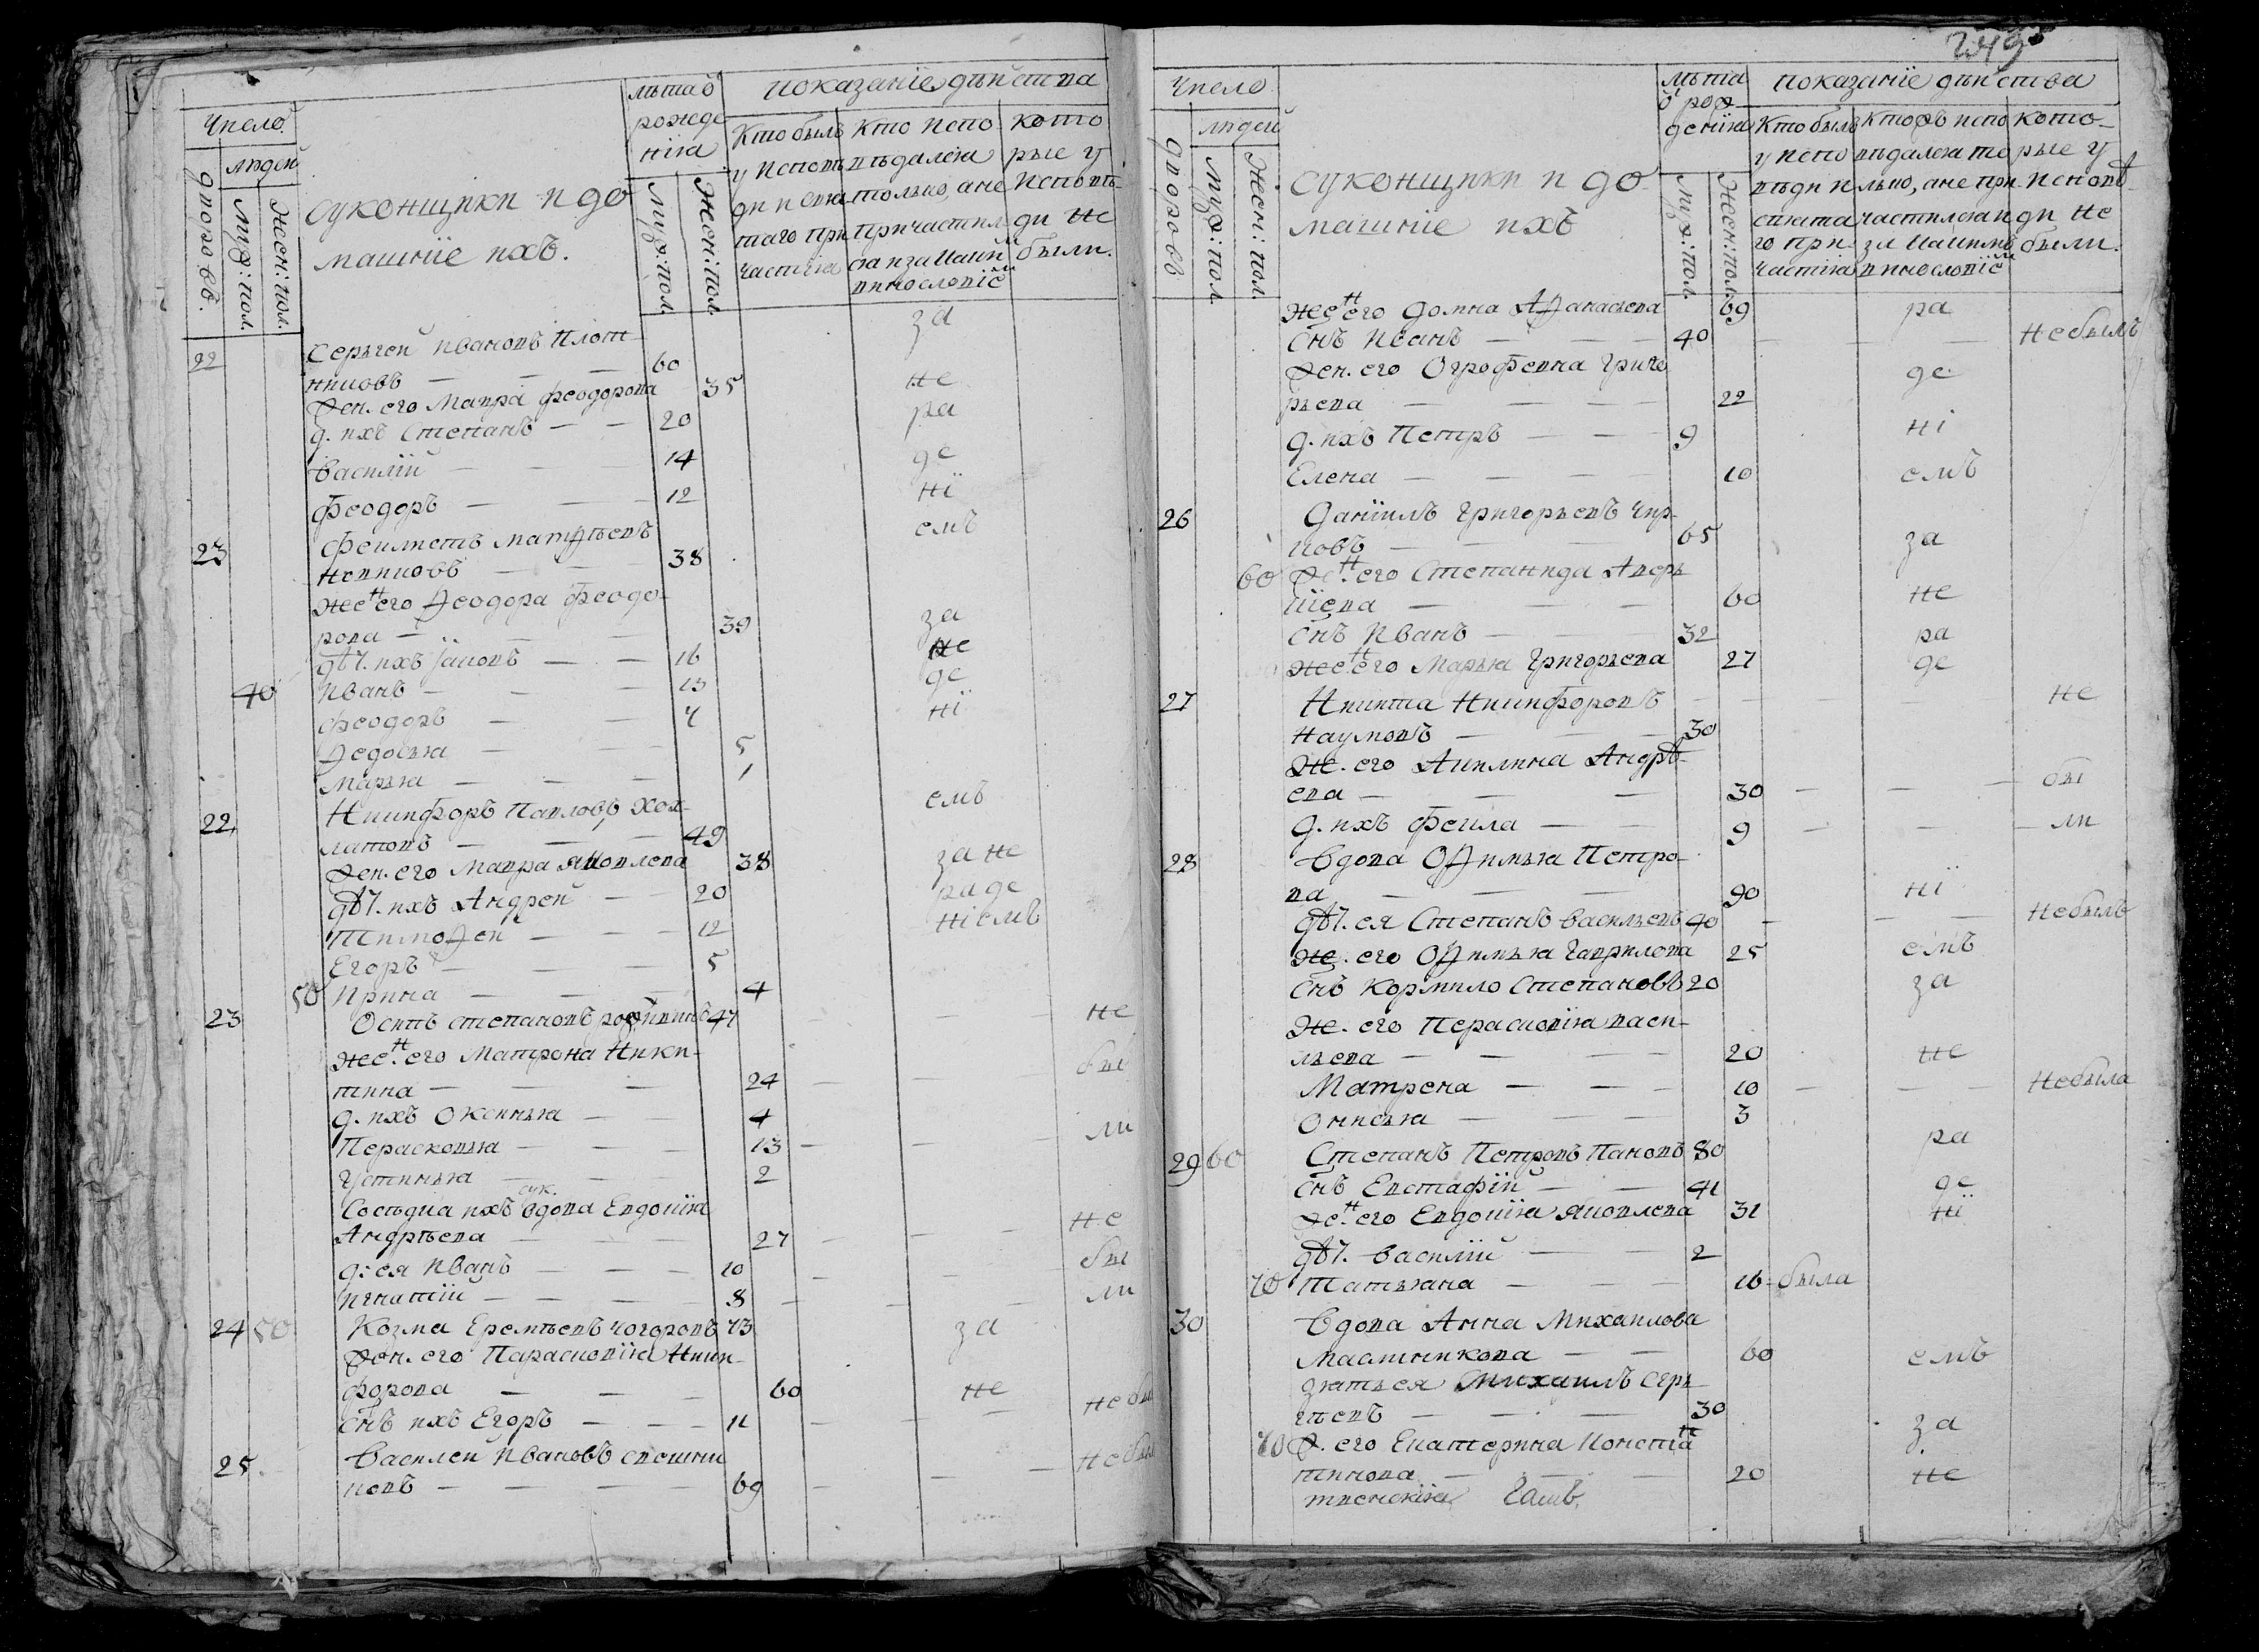 Число
людей
дворовъ.
Муж: пол.
Жен: пол.
суконщики и до
машніе ихъ.
лѣта ѿ
рожде
нія
Муж: пол.
Жен: пол.
показаніе дѣйства
Кто былъ
у исповѣ
ди и свя
таго при
частія
Кто испо
вѣдался
только, а не
причастил
ся и за каким
винословіем
кото
рые у
исповѣ
ди не
были.
за
22 Сергей Ивановъ Плот
никовъ — — — 60
Жен. его Мавра Феодорова 35 не
д. ихъ Степанъ — — 20 ра
Василій — — 14 де
Феодоръ — — — 12 ні
23 Феилистъ Матѳѣевъ емъ
Новиковъ — — 38
жен его Ѳеодора Феодо
рова — — — 39 за
дѣт. ихъ Іаковъ — — 16 не
40 Иванъ — — — 13 де
Феодоръ — — 7 ні
Ѳедосья — — 5
Марья — — — 1
22 Никифоръ Павловъ Хох
латовъ — — — 49 емъ
Жен. его Мавра Яковлева 38 за не
дѣт. ихъ Андрей — — 20 раде
Тимоѳей — — — 12 ніемъ
Егоръ — — — 5
50 Ирина — — — 4
23 Осипъ степановъ 47 — — не
жен. его Матрона Ники
тина — — — 24 — — бы
д. ихъ Оксинья — — 4
Перасковья — — 13 — — ли
Устинья — — — 2
сук.
Сосѣдка ихъ вдова Евдокія
Андрѣева — — — 27 — — не
д: ея Иванъ — — — 10 — — бы
Игнатій — — — 8 — — ли
24 50 Козма Еремѣевъ 73 за
Жен. его Парасковія Ники
форова — — — 60 не
снъ ихъ Егоръ — — — 11 — — небы
25. Василей Ивановъ свешни
ковъ — — — — 69 — — — небы
249
Число
людей
дворовъ
Муж: пол.
Жен: пол.
суконщики и до
машніе ихъ
лѣта
ѿ рож
денія
Муж: пол.
Жен: пол.
показаніе дѣйства
Кто былъ
у испо
вѣди и
свята
го при
частія
Кто жъ испо
вѣдался то
лько, а не при
частился и
за какимъ
винословіем
кото
рые у
исповѣ
ди не
были.
жен его Домна Аѳанасьева 69 ра
снъ Иванъ — — — 40 — — — небылъ
Жен. его Огрофенна Григо де
рьева — — — — 22
д. ихъ Петръ — — — 9 ні
Елена — — — — 10 емъ
26 Даніилъ Григорьевъ Чир
ковъ — — — 65 за
60 Жен. его Степанида Авер
кіева — — — 60 не
снъ Иванъ — — — 32 ра
жен его Марья Григорьева 27 де
27 Никита Никифоровъ — — — не
Наумовъ — — — 30
Же. его Акилина Андрѣ
ева — — — 30 — — — бы
д. ихъ Фекла — — — 9 — — — ли
28 Вдова Оѳимья Петро
ва — — — — 90 ні
дѣт. ея Степанъ Васильевъ 40 — — — небылъ
же. его Оѳимья Гаврилова 25 емъ
снъ Кормило Степановъ 20 за
Же. его Перасковія васи
льева — — — 20 не
Матрена — — — 10 — — — небыла
Онисья — — — 3
29 60 Степанъ Петровъ Пановъ 80 ра
снъ Евстафій — — 41 де
Же. его Евдокія Яковлева 31 ні
дѣт. Василій — — 2
70 Татьяна — — — 16 — была
30 Вдова Анна Михаилова
Масленикова — — 60 емъ
зять ея Михаилъ Сер
гѣевъ — — — 30
70 Ж. его Екатерина Конста за
тинова — — — 20 не